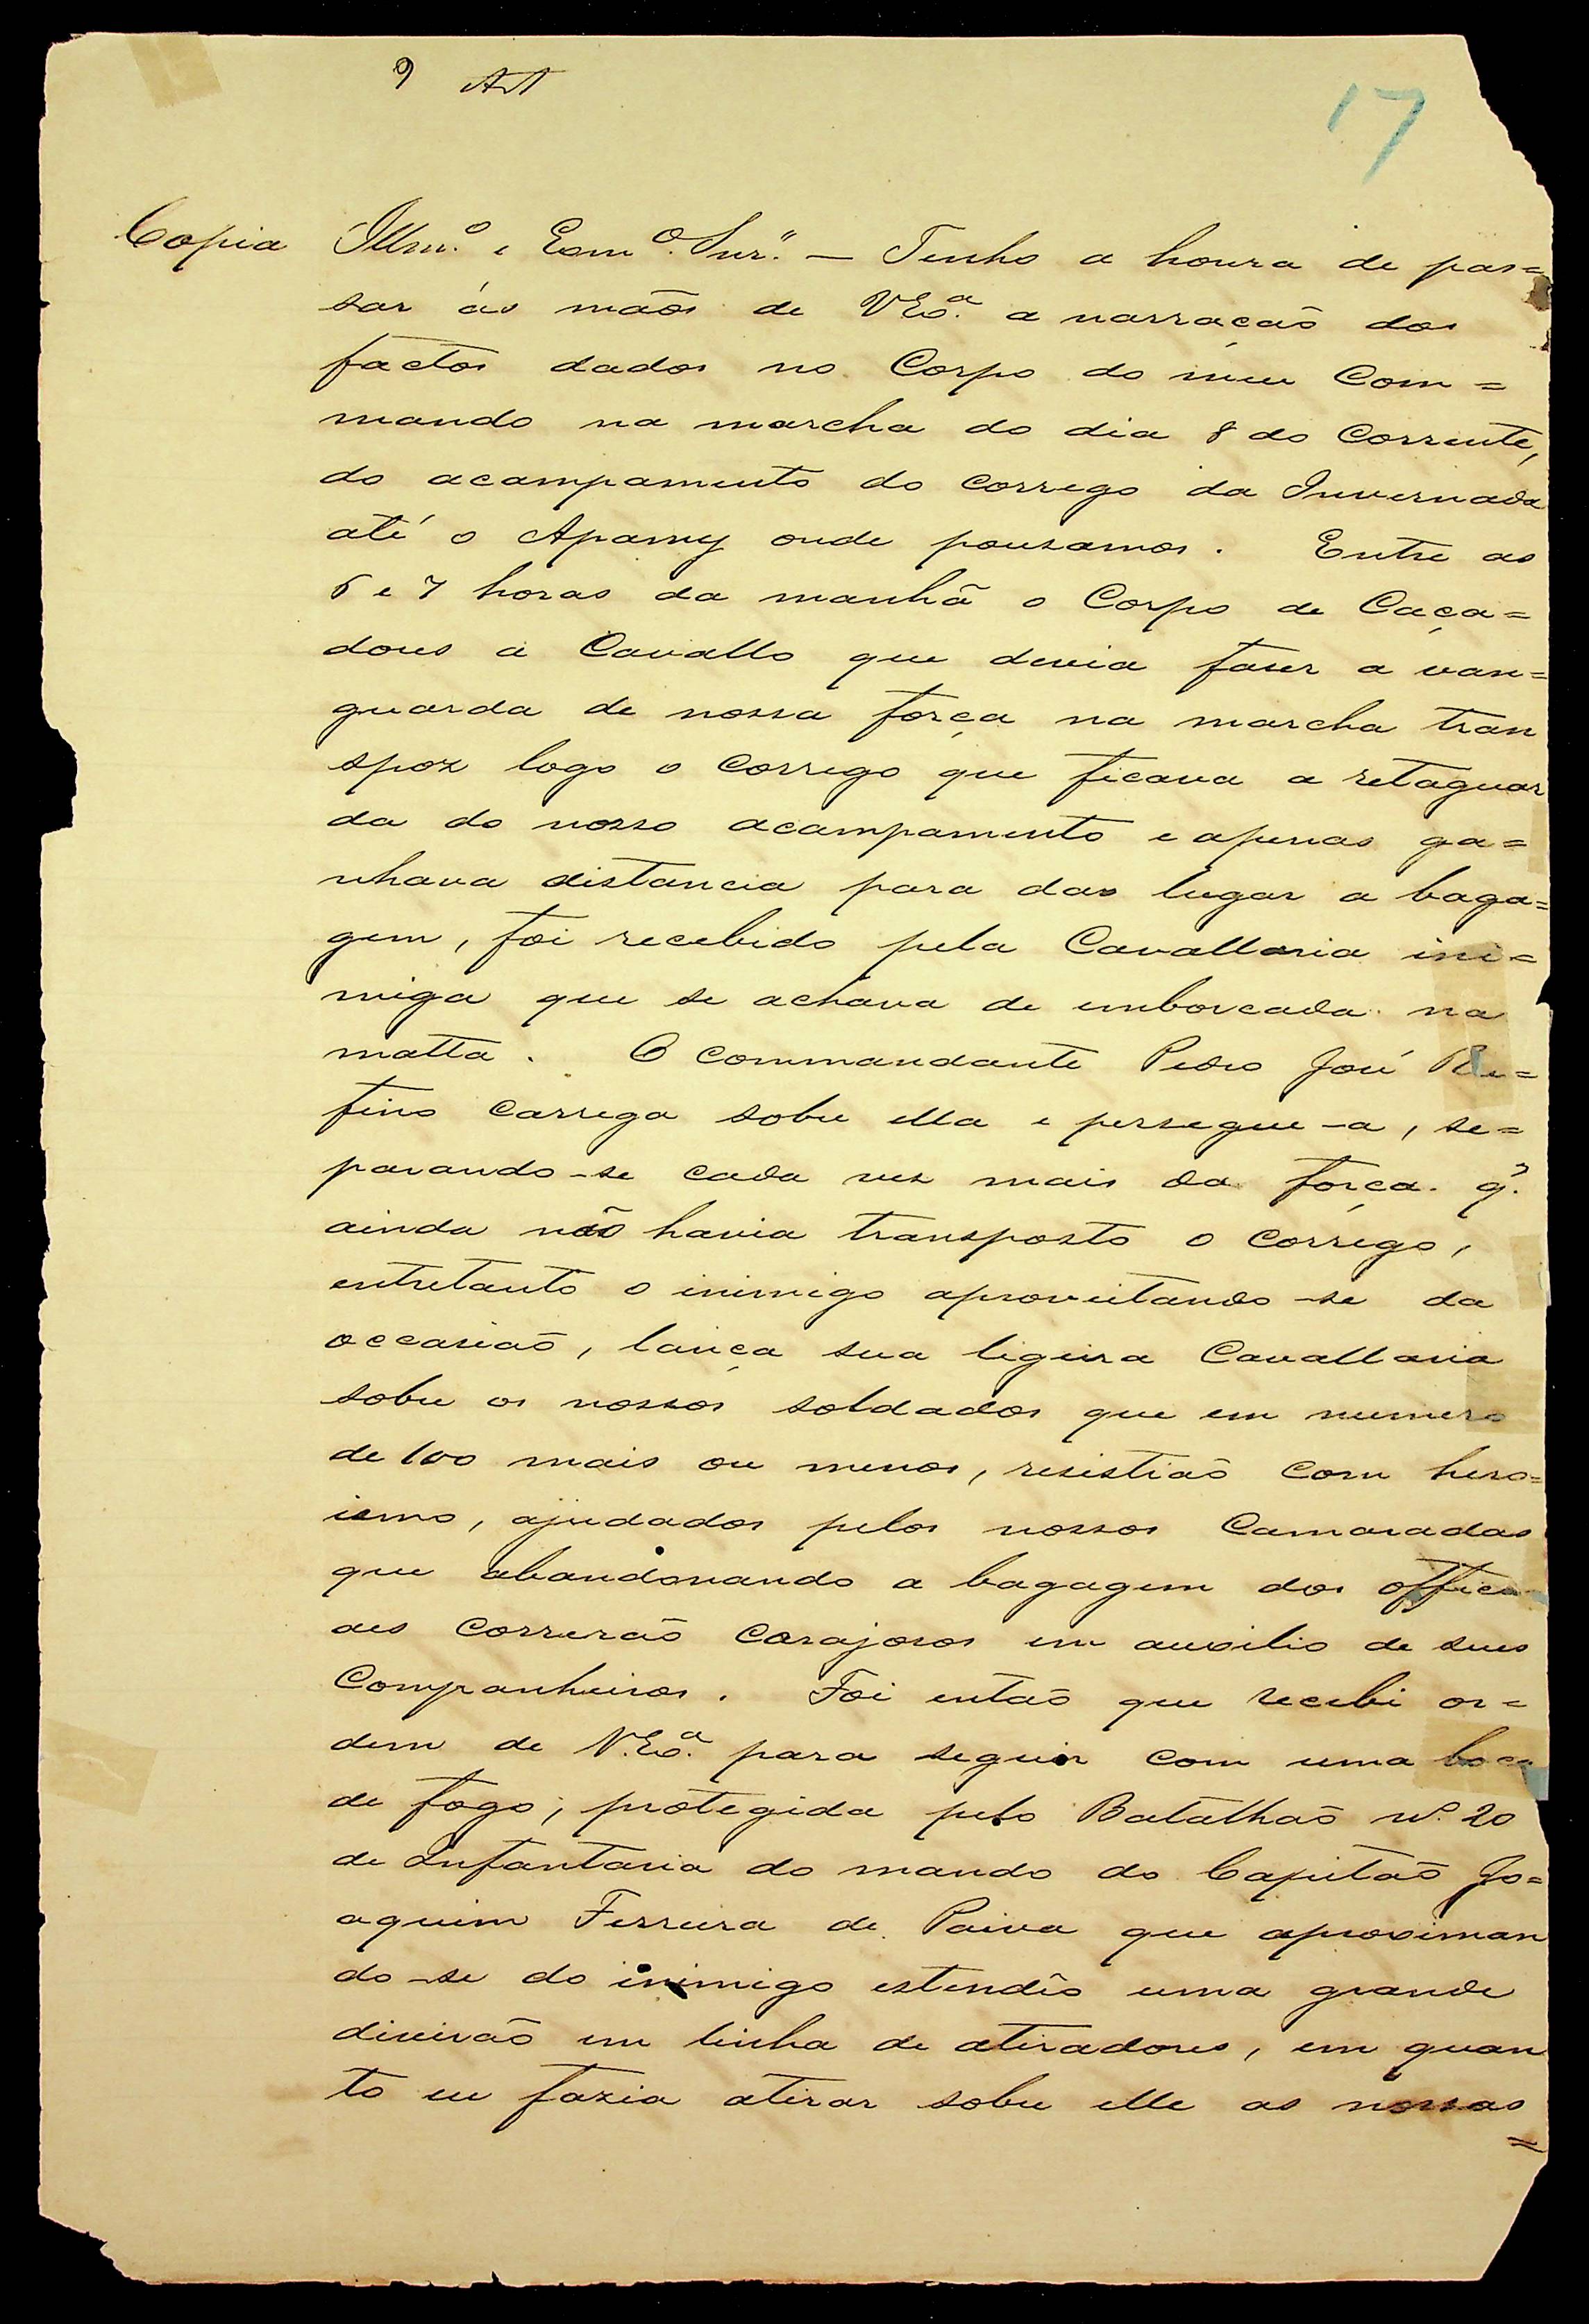 9 AA
17
Copia Illmº. e Exmº. Snr.. — Tenho a honra de pas=
sar ás mãos de VExª. a narração dos
factos dados no Corpo do meu Com=
mando na marcha do dia 8 do Corrente,
do acampamento do corrego da Invernada
até o Apamy onde pousamos. Entre as
6 e 7 horas da manhã o Corpo de Caça=
dores a Cavallo que devia faser a van=
guarda de nossa força na marcha tran
spoz logo o Corrego que ficava a retaguar
da do nosso acampamento e apenas ga=
nhava distancia para dar lugar a baga=
gem, foi recebido pela Cavallaria ini=
miga que se achava de emboscada na
matta. O commandante Pedro José Ru=
fino carrega sobre ella e persegue-a, se=
parando-se cada vez mais da força q̃.
ainda não havia transposto o Corrego,
entretanto o inimigo aproveitando-se da
occasião, lança sua ligeira Cavallaria
sobre os nossos soldados que em numero
de 100 mais ou menos, resistião com hero=
ismo, ajudados pelos nossos Camaradas
que abandonando a bagagem dos offici
aes correrão corajosos em auxilio de seus
Companheiros. Foi então que recebi or=
dem de V.Exª. para seguir com uma boca
de fogo, protegida pelo Batalhão nº. 20
de Infantaria do mando do Capitão Jo=
aquim Ferreira de Paiva que aproximan
do-se do inimigo estendêo uma grande
divisão em linha de atiradores, em quan
to eu fazia atirar sobre elle as nossas
=